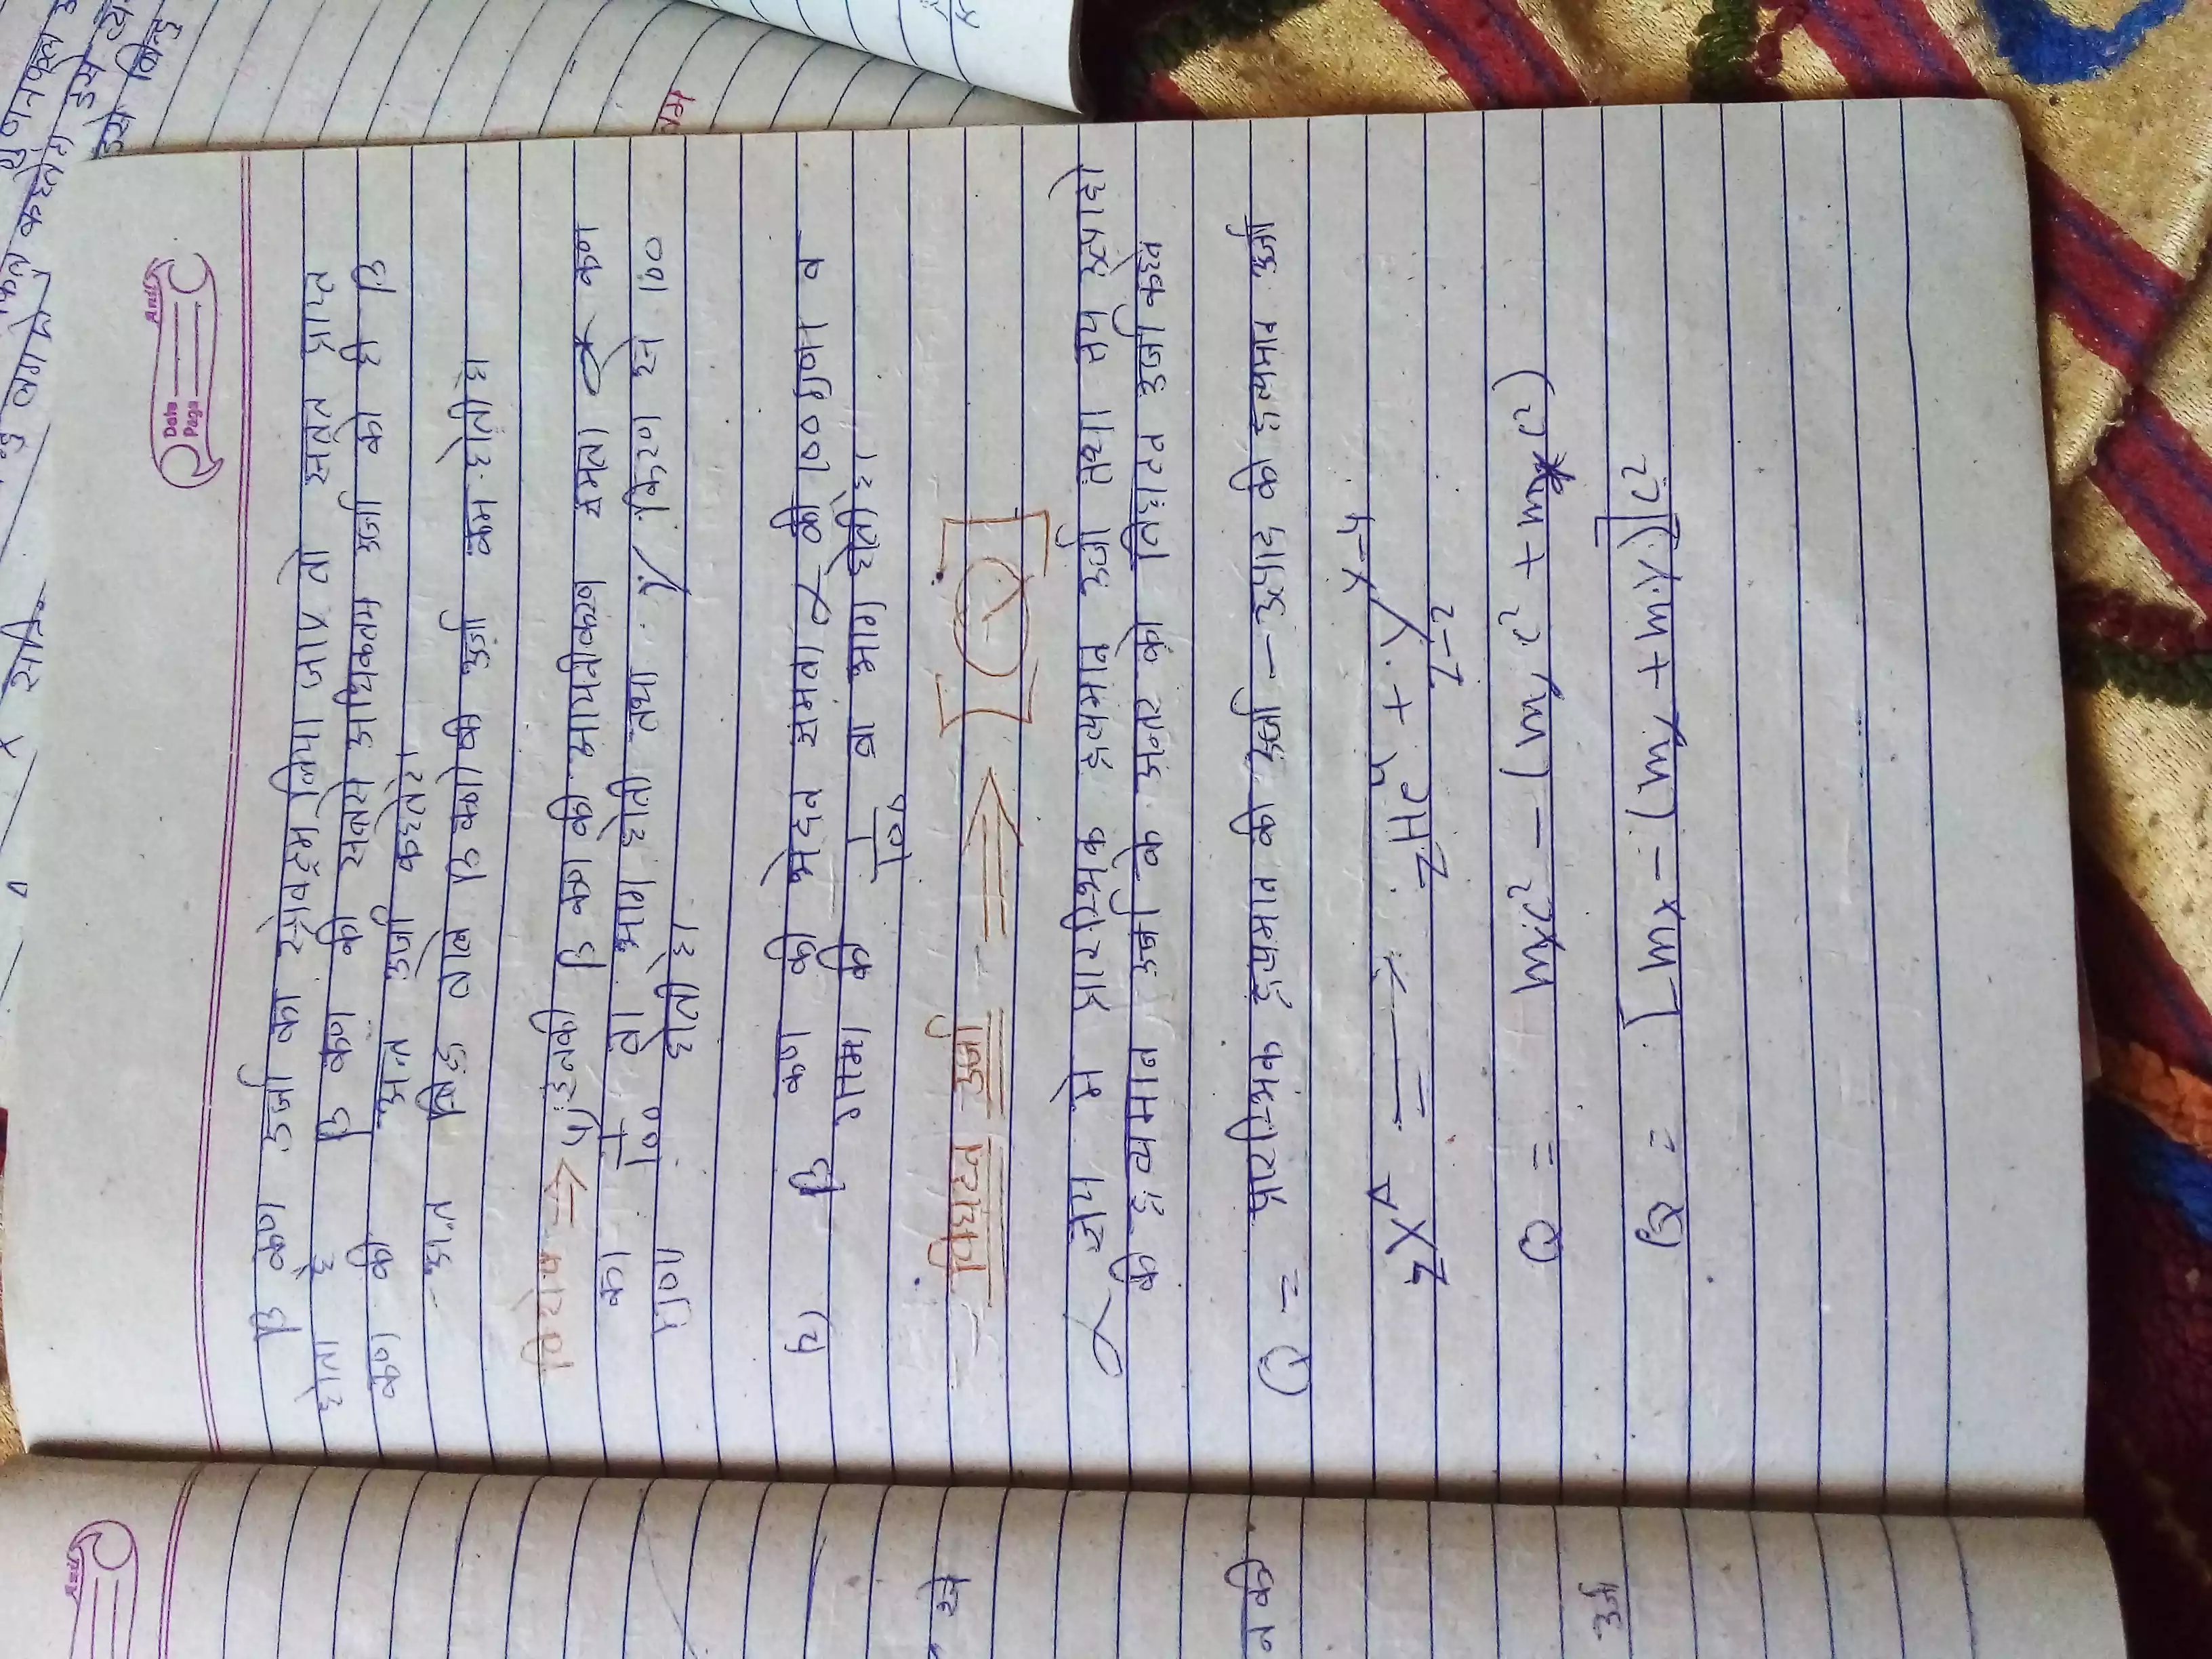 Anil
Date
Page
β कण उर्जा का स्पेक्ट्रम लिया जाए तो सतत प्राप्त
होता है β कण की सबसे अधिकतम उर्जा को ही β
कण की अन्त उर्जा कहते है।
अन्त बिन्दु वाले β कणो की उर्जा कम होती है।
विशेष ⇒ 1) इनकी β कण की आयनीकरण क्षमता α कण
का 1/100 वा भाग होती तथा γ किरण से 100
गुणा होती है।
(2) β कण की भेदन क्षमता α की 100 गुणा व
गामा की 1/100 वा भाग होती है।
विघटन उर्जा ⇒ [Q]
α क्षय मे प्रारम्भिक द्रव्यमान उर्जा तथा क्षय उत्पादो
की द्रव्यमान उर्जा के अन्तर को विघटन उर्जा कहते
Q = प्रारम्भिक द्रव्यमान की उर्जा - उत्पाद की द्रव्यमान उर्जा
zX^A ⟶ 2He^4 + z-2Y^A-4
Q = mxc² - (myc² + mαc²)
Q = [mx - (my + mα)]c²
से
न की
उर्जा